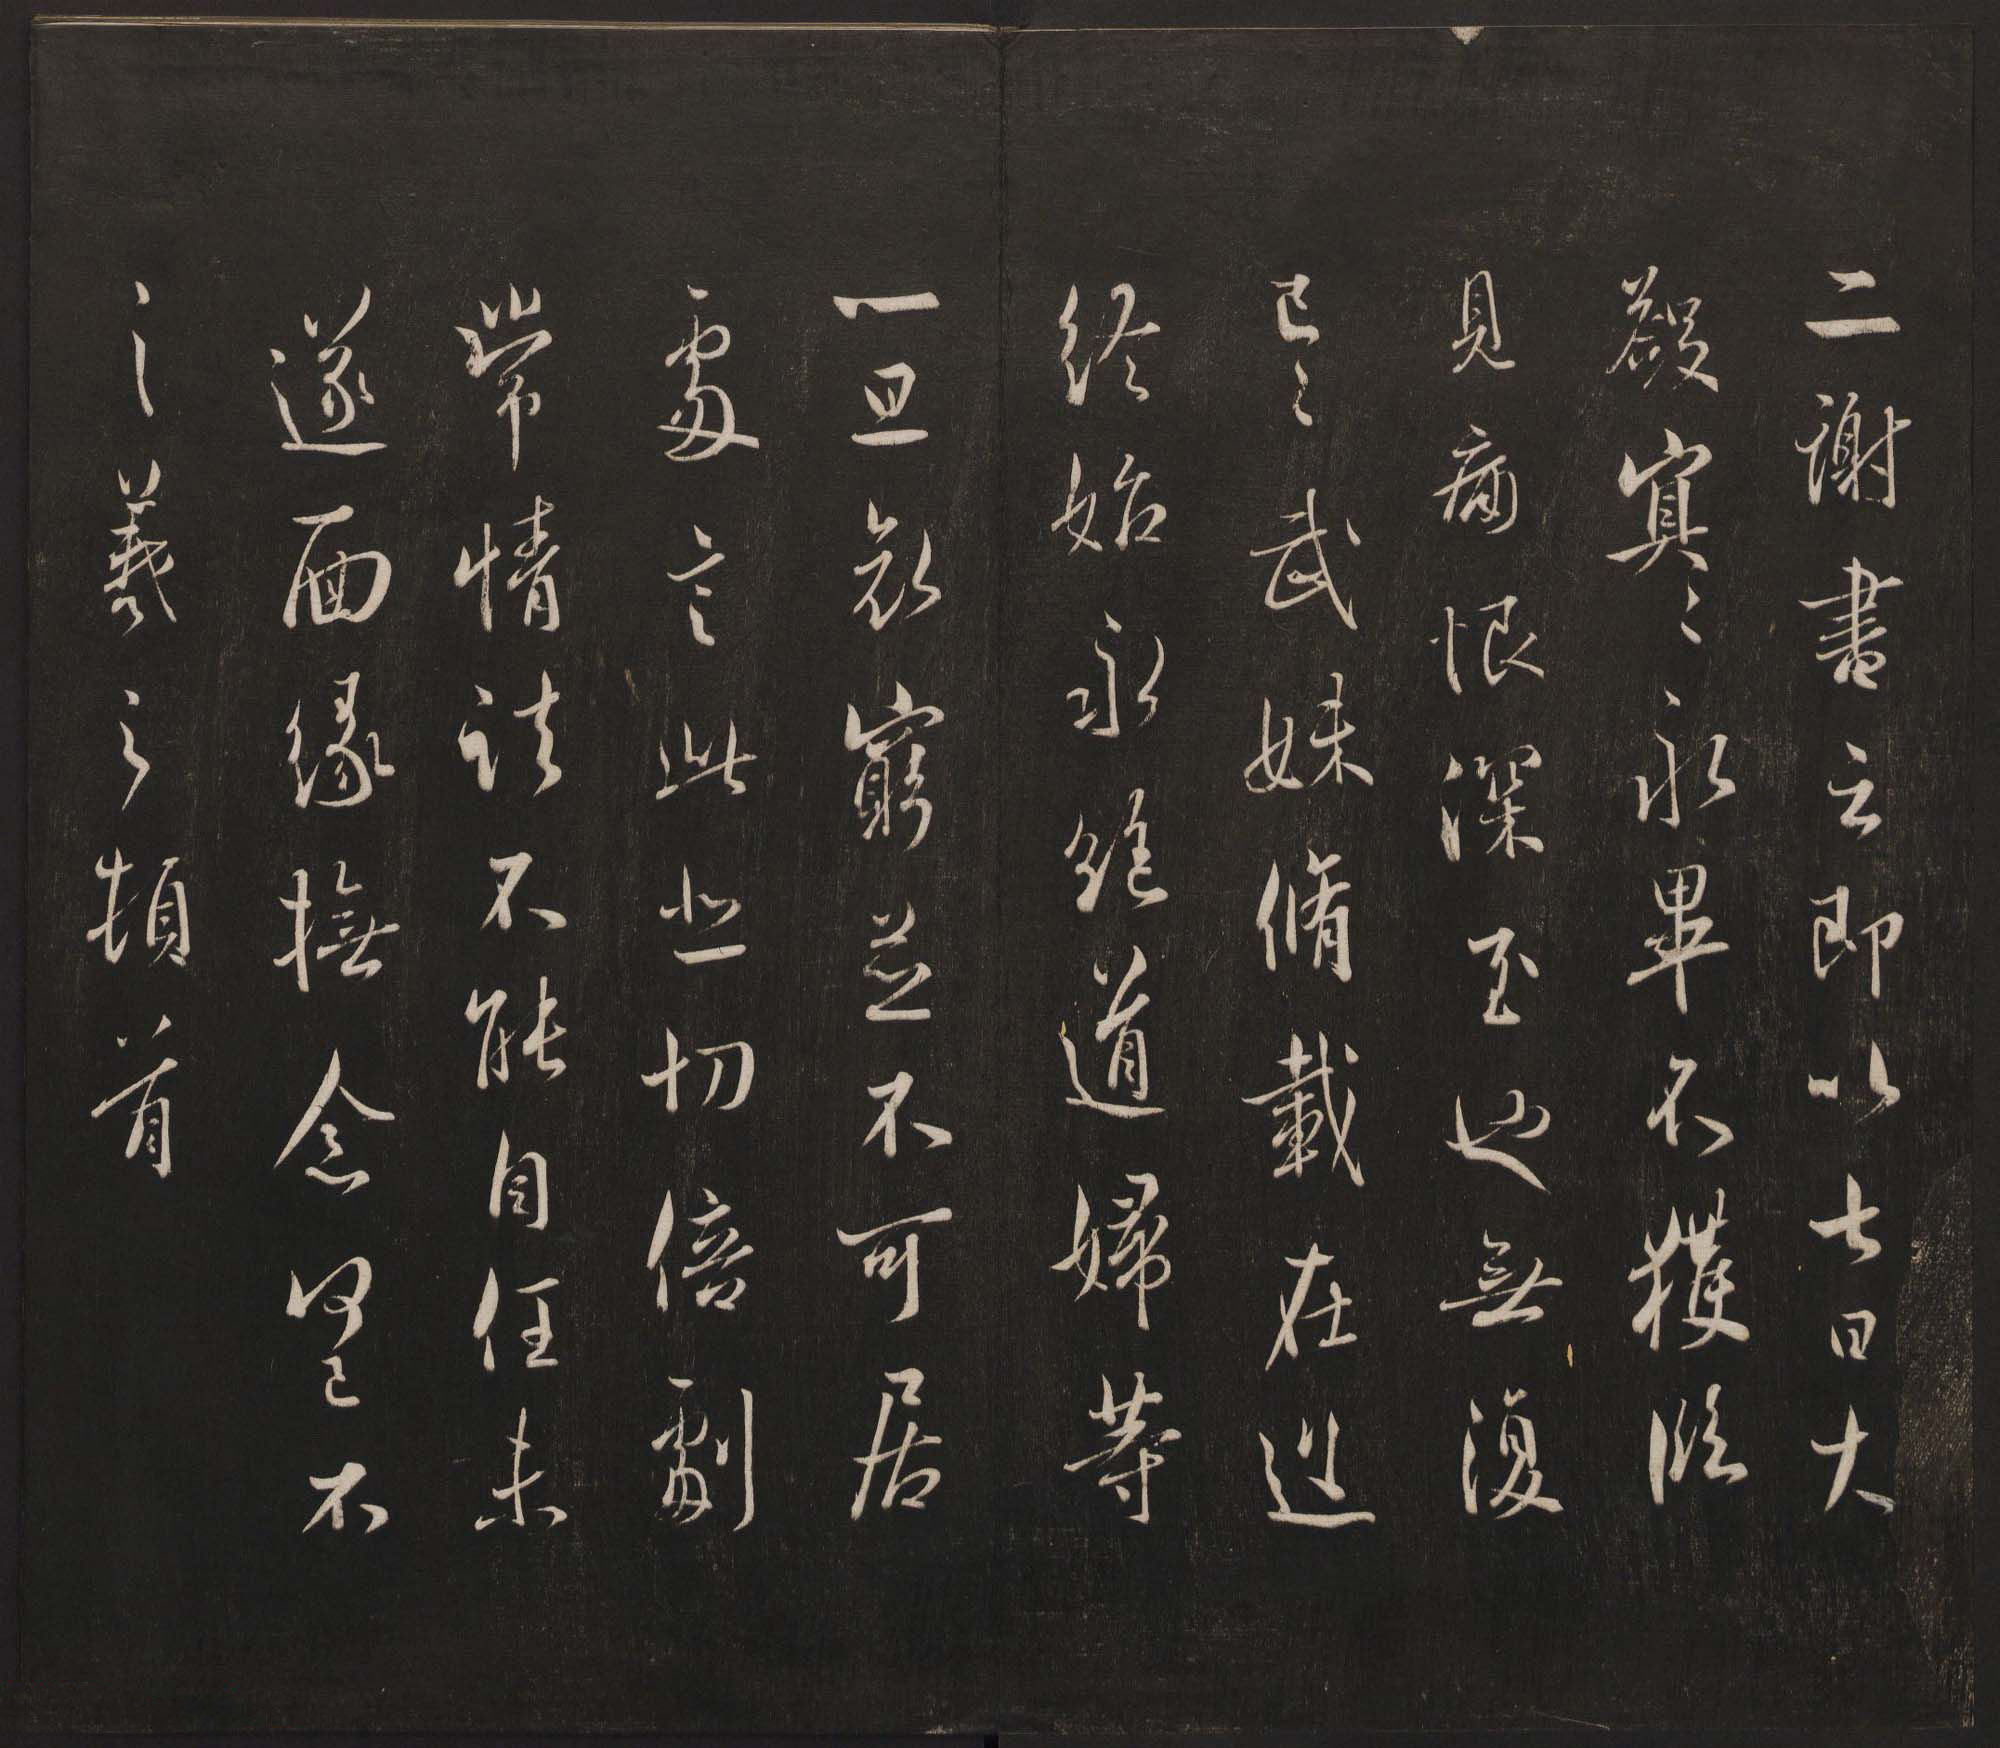 二謝書云即以七日大
殮冥冥永畢不獲臨
見痛恨深至也無復
已已武妹脩載在道
終始永絕道婦等
一旦哀窮並不可居
處言此悲切倍劇
常情諸不能自任未
遂面緣撫念何已不
一一羲之頓首